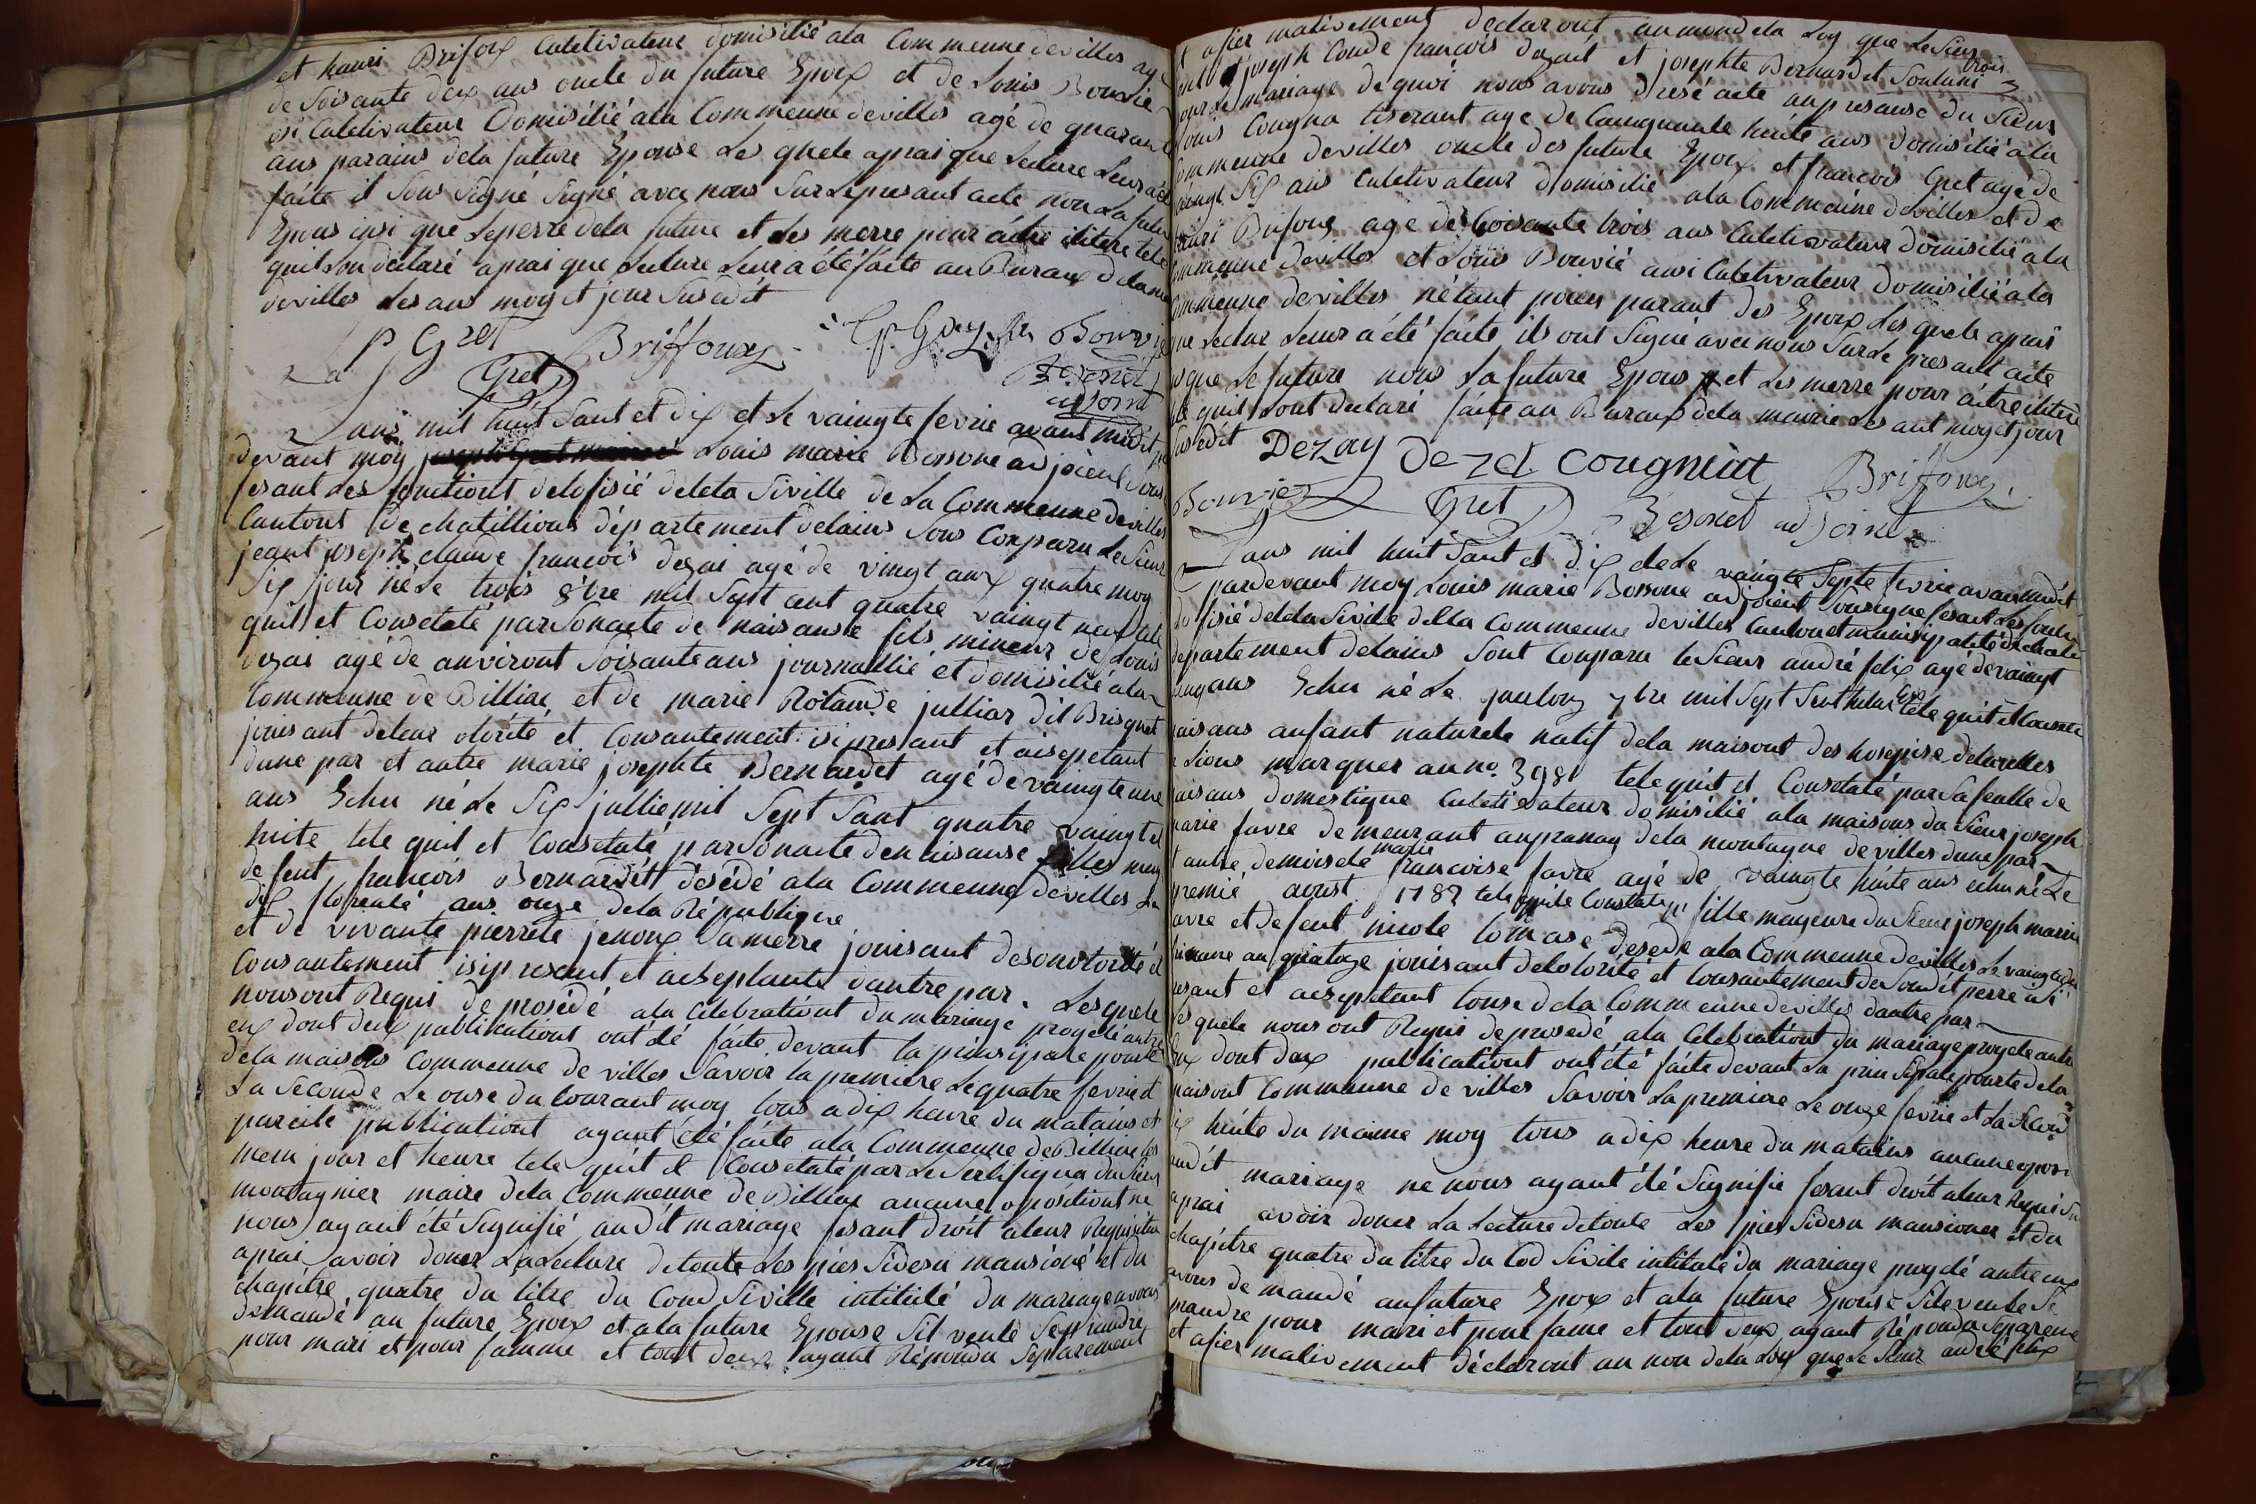 et hanri Brifoux Culetivateur domisilié ala Commenne de villes agé
de soisante dix ans oncle du future Epoux et de Louis Bouvié
osi Culetivateur Domisilié ala Commenne de villes agé de quarant
ans parains dela future Epouse Les quele aprai que Lecture Leur a été
faite il sous signé signé avec nous sur Le presant acte non La future
Epous insi que Le perre dela future et Les merre pour aitre ilitere tele
quil son déclaré aprai que Lecture Leur a été faite au Buraux dela
de villes Les ans moy et jour susedit
Gret Briffoux Bouvié
Gret Besonet
adjoint
Lans mil huit sant et dix et Le vaingte fevrie avant midit
devant moy Louis marie Bossone adjoient sous
fesant Les fonctiont delofisié deleta siville de La Commenne de villes
Cantont de chatillions département delains sous Conparu Le sieur
jeant joseph claude françois dezai agé de vingt aux quatre moy
six jour né Le trois 8bre mil sept ant quatre vaingt neuf tele
quil et Consetaté par sonacte de naisanse fils mineur de Louis
dezai agé de anviront soisante ans journallié et domisilié ala
Commenne de Billiax et de marie Rolande julliar dit Brisquet
jouisant deleur otorité et Consantement isi presant et aiseptant
dune par et autre marie josephte Bernardet agé de vaingte une
ans Echu né Le six jullie mil sept sant quatre vaingt et
huite tele quil et Consetaté par sonacte denaisanse filles mineur
de feut françois Bernardet désédé ala Commenne de villes Le
dix floréalé ans onze dela République
et de vivante pierrete jenoux sa merre jouisant deson otorité et
Consantement isi presant et aiseptante dautre par. Les quele
nous ont Requi de prosédé ala Célébrationt du mariage progeté antre
eux dont deux publicationt ont été faite devant la prinsipale pourte
dela maisons Commenne de villes savoir la premiere Le quatre fevrie et
La seconde Le onse du Courant moy tous a dix heure du matains et
pareile publicationt ayant été faite ala Commenne de Billiax les
mem jour et heure tele quil et Consetaté par Le sertifiqua du sieur
montagnier maire dela Commenne de Billiax aucune opositiont ne
nous ayant été signifié audit mariage fesant droit aleur Requisition
aprai avoir doner La Lecture de toute Les pies sidesu mansioné et du
chapitre quatre du titre du Coud siville intitulé du mariage avons
demandé au future Epoux et ala future Epouse sil veule se prandre
pour mari et pour famme et tout deux ayant Répondu separément
et afier mativement déclaront au nom dela Loy que Le sieur
jant joseph Claude françois dezait et josephte Bernardet sont uni
pour Le mariage de quoi nous avons dresé acte an presanse du sieurs
Louis Cougna tiserant age de Cainquante huite ans domisilié ala
Commenne de villes oncle des future Epoux et françois Gret age de
vaingt six ans Culetivateur domisilié ala Commenne de villes et de
hanri Brifoux age de soisante trois ans Culetivateur domisilié ala
Commenne de villes et Louis Bouvié ausi Culetivateur domisilié ala
Commenne de villes nétant poient parant des Epoux Les quele aprai
que Lectur Leur a été faite ils ont signé avec nous sur Le presant acte
que Le future nous La future Epous et Les merre pour aitre iliteré
quil sont déclaré faite au Buraux dela mairie Les ant moy et jour
susedit Dezay Dezet Cougniat Briffoux
Bouvier Gret Besonet adjoint
Lans mil huit sant et dix et Le vaingte septe fevrie avant midit
pardevant moy Louis marie Bossone adjoient sousigné fesant Les fontion
dofisié deleta sivile della Commenne de villes Canton et munisipalité de chatil
département delains sont Conparu Le sieur andré felix agé de vaingt
ans Echu né Le 7bre mil sept sent huitante tele quil et Conseta
naisans anfant naturele natif dela maisont des hospise delavilles
Lions marquer au no. 398 tele quil et Consetaté par sa feulle de
naisans domestique Culetivateur domisilié ala maisons du sieur joseph
marie favre demeurant dela montagne de villes dune par
et autre demoisele marie francoise favre agé de vaingte huite ans echu né Le
premié aoust 1782 tele quile Constate fille mageure du sieur joseph marie
favre et de feut nicole tomase desedé ala Commenne de villes Le vaingt
frimaire an quatoze jouisant delotorité et Consantement deson dit perre isi
presant et aiseptant tous dela Commenne de villes dautre par
Les quele nous ont Requi de prosédé ala Célébrationt du mariage progeté antre
Eux dont deux publicationt ont été faite devant La prinsipale pourte dela
maisont Commenne de villes savoir La premiere Le onze fevrie et La second
dix huite du maime moy tous a dix heure du matains aucune oposi
audit mariage ne nous ayant été signifié fesant droit aleur Requisi
aprai avoir doner La Lecture detoute Les pies sidesu mansioner et du
chapitre quatre du titre du Cod sivile intitulé du mariage progeté antre eux
avons demandé aufuture Epoux et ala future Epouse sile veule se
prandre pour mari et pour fame et tout deux ayant Répondu separeme
et afier mativement déclaront au nom dela Loy que Le sieur andré felix